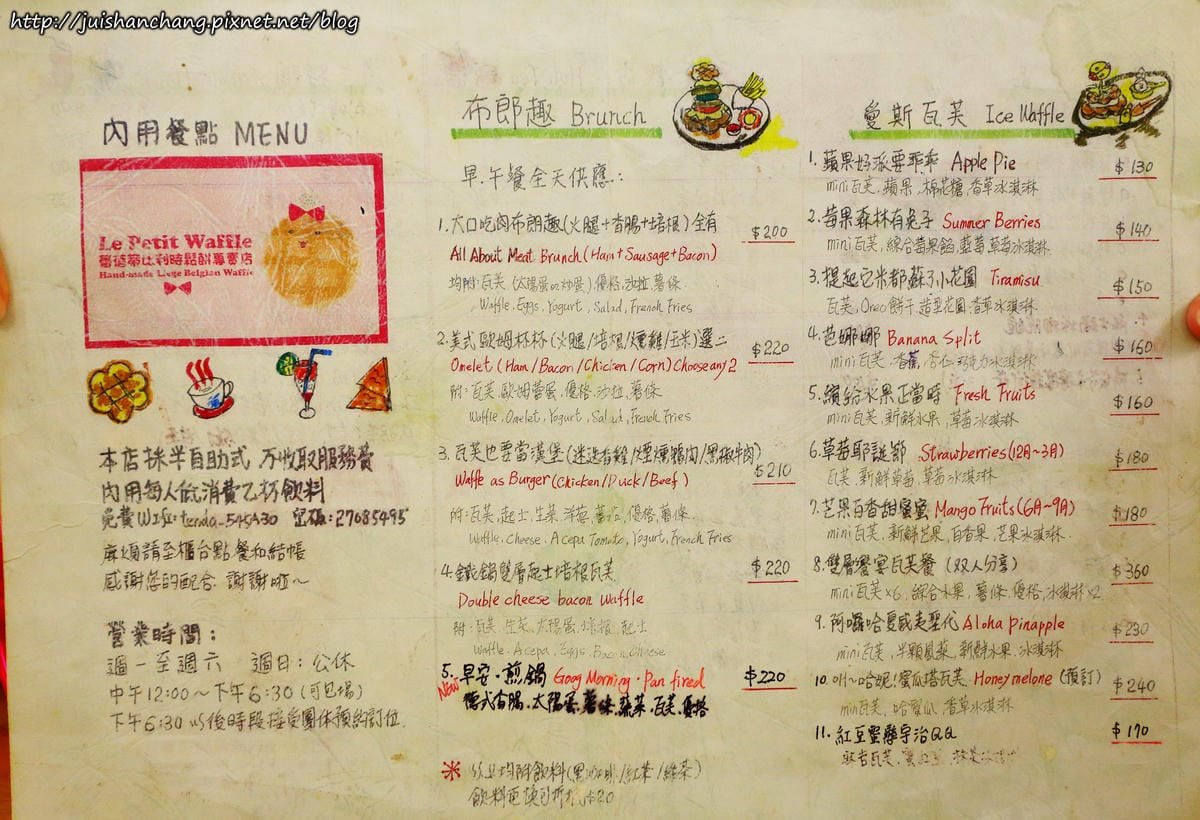 http://juishanchang.pixnet.net/blog
內用餐點 MENU
Le Petit Waffle
馨蓓蒂比利時鬆餅專賣店
Hand-made Liege Belgian Waffle
本店採半自助式 不收取服務費
內用每人低消費乙杯飲料
免費Wifi: tenda-545A30 密碼: 27685495
麻煩請至櫃台點餐和結帳
感謝您的配合 謝謝啦~
營業時間:
週一至週六 週日: 公休
中午12:00~下午6:30 (可包場)
下午6:30 以後時段接受團体預約訂位
布郎趣 Brunch
早.午餐全天供應:
1.大口吃肉布朗趣(火腿+香腸+培根)全有 $200
All About Meat Brunch (Ham+Sausage+Bacon)
均附:瓦芙.(太陽蛋or炒蛋).優格.沙拉.薯條
Waffle.Eggs.Yogurt.Salad.French Fries
2.美式歐姆杯杯(火腿/培根/燻雞/玉米)選二 $220
Omelet (Ham/Bacon/Chicken/Corn) Choose any 2
附:瓦芙.歐姆蕾蛋.優格.沙拉.薯條
Waffle.Omelet.Yogurt.Salad.French Fries
3.瓦芙也要當漢堡(迷迭香雞/煙燻鴨肉/黑椒牛肉)
Waffle as Burger (Chicken/Duck/Beef) $210
附:瓦芙.起士.生菜.洋蔥.蕃茄.優格.薯條
Waffle.Cheese.Acepa Tomato.Yogurt.French Fries
4.鐵鍋雙層起士培根瓦芙 $220
Double cheese bacon Waffle
附:瓦芙.生菜.太陽蛋.培根.起士
Waffle.Acepa.Eggs.Bacon.Cheese
5.早安.煎鍋 Goog Morning.Pan fired $220
New 德式香腸.太陽蛋.薯條.蔬菜.瓦芙.優格
※ 以上均附飲料(黑咖啡/紅茶/綠茶)
飲料更換可折抵$20
曼斯瓦芙 Ice Waffle
1.蘋果好派要乖乖 Apple Pie $130
mini瓦芙.蘋果.棉花糖.香草冰淇淋
2.莓果森林有兔子 Summer Berries $140
mini瓦芙.綜合莓果餡.藍莓草莓冰淇淋
3.提起它米都蘇了小花園 Tiramisu $150
瓦芙.Oreo餅干.造型花園.香草冰淇淋
4.芭娜娜 Banana Split $160
mini瓦芙.香蕉.杏仁.巧克力冰淇淋
5.繽紛水果正當時 Fresh Fruits $160
mini瓦芙.新鮮水果.草莓冰淇淋
6.草莓耶誕節 Strawberries (12月~3月) $180
瓦芙.新鮮草莓.草莓冰淇淋
7.芒果百香甜蜜蜜 Mango Fruits (6月~9月) $180
mini瓦芙.新鮮芒果.百香果.芒果冰淇淋
8.雙層饗宴瓦芙餐 (双人分享) $360
mini瓦芙×6.綜合水果.薯條.優格.冰淇淋×2
9.阿囉哈夏威夷聖代 Aloha pinapple $230
mini瓦芙.半顆鳳梨.新鮮水果.冰淇淋
10.哈妮!蜜瓜塔瓦芙 Honey melone (預訂) $240
mini瓦芙.哈蜜瓜.香草冰淇淋
11.紅豆聖戀宇治QQ $170